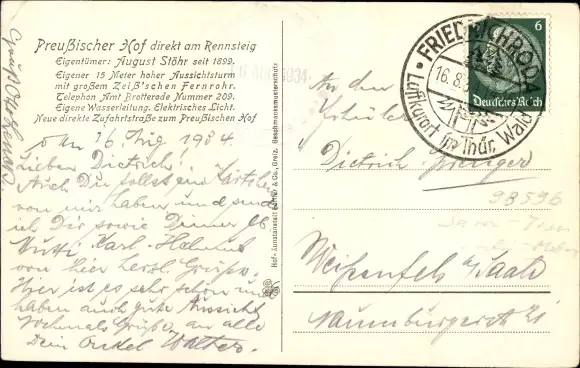 Preußischer Hof direkt am Rennsteig
Eigentümer: August Stöhr seit 1899.
Eigener 15 Meter hoher Aussichtsturm
mit großem Zeiß'schen Fernrohr.
Telephon Amt Brotterode Nummer 209.
Eigene Wasserleitung. Elektrisches Licht.
Neue direkte Zufahrtstraße zum Preußischen Hof
16. Aug 1934
Lieben Dietrich!
Auch Du sollst ein Kärtchen
von mir haben und send
ich Dir sowie Deiner lb
Mutti Karl-Helmut
von hier herzl. Grüße.
Hier ist es sehr schön und
haben auch gute Aussicht
Nochmals Grüße an alle
Dein Onkel Walter.
Geschmacksmusterschutz
Hof-Kunstanstalt & Co., Greiz.
FRIEDRICHRODA
16.8.
Luftkurort im Thür. Wald
6
Deutsches Reich
An den
Schüler
Dietrich
98596
Weißenfels a/Saale
Naumburgerstr 21